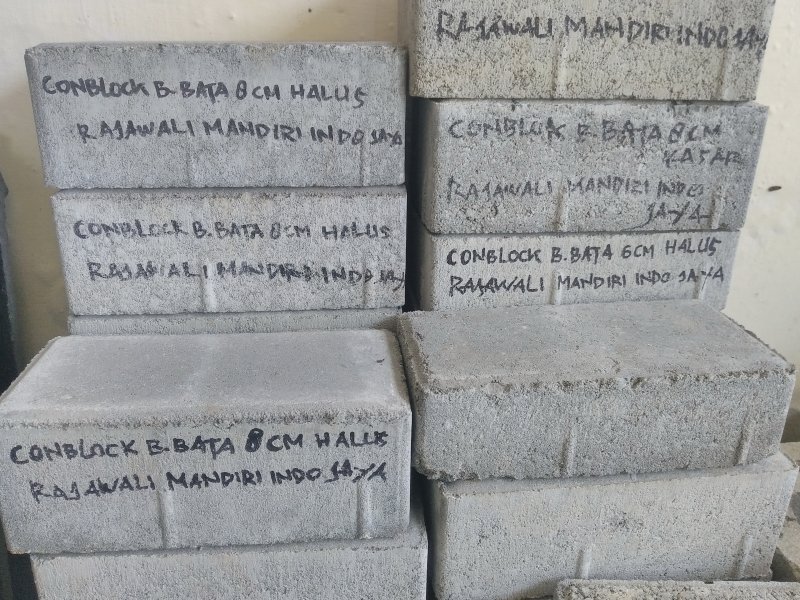 CONBLOCK B.BATA 8CM HALUS
RAJAWALI MANDIRI INDO JAYA
CONBLOCK B.BATA 8CM HALUS
RAJAWALI MANDIRI INDO JAY
CONBLOCK B.BATA 8CM HALUS
RAJAWALI MANDIRI INDO JAYA
RAJAWALI MANDIRI INDO JAY
CONBLOK B.BATA 8CM
KASAR
RAJAWALI MANDIRI INDO
JAYA
CONBLOCK B.BATA 6CM HALUS
RAJAWALI MANDIRI INDO JAYA